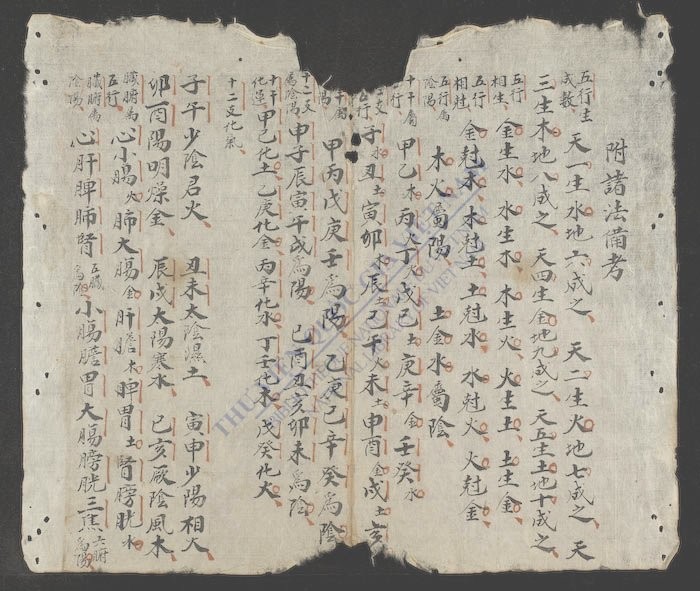 附諸法備考
五行生成數 天一生水地六成之 天二生火地七成之 天
三生木地八成之 天四生金地九成之 天五生土地十成之
五行相生 金生水 水生木 木生火 火生土 土生金
五行相尅 金尅木 木尅土 土尅水 水尅火 火尅金
五行為陰陽 木火屬陽 土金水屬陰
十干屬行 甲乙木 丙丁火 戊己土 庚辛金 壬癸水
支行 子水丑土寅卯木辰土巳午火未土申酉金戌土亥
干屬陽 甲丙戊庚壬為陽 乙庚己辛癸為陰
十二支為陰陽 申子辰寅午戌為陽 巳酉丑亥卯未為陰
十干化運 甲己化土 乙庚化金 丙辛化水 丁壬化木 戊癸化火
十二支化氣
子午少陰君火 丑未太陰濕土 寅申少陽相火
卯酉陽明燥金 辰戌太陽寒水 巳亥厥陰風木
臟腑為五行 心小腸火 肺大腸金 肝膽木 脾胃土 腎膀胱水
臟腑為陰陽 心肝脾肺腎五臟為陰 小腸膽胃大腸膀胱三焦六腑為陽
THƯ VIỆN QUỐC GIA VIỆT NAM
NATIONAL LIBRARY OF VIETNAM